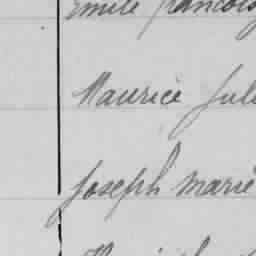 Emile francois
Maurice Jul
Joseph Marie